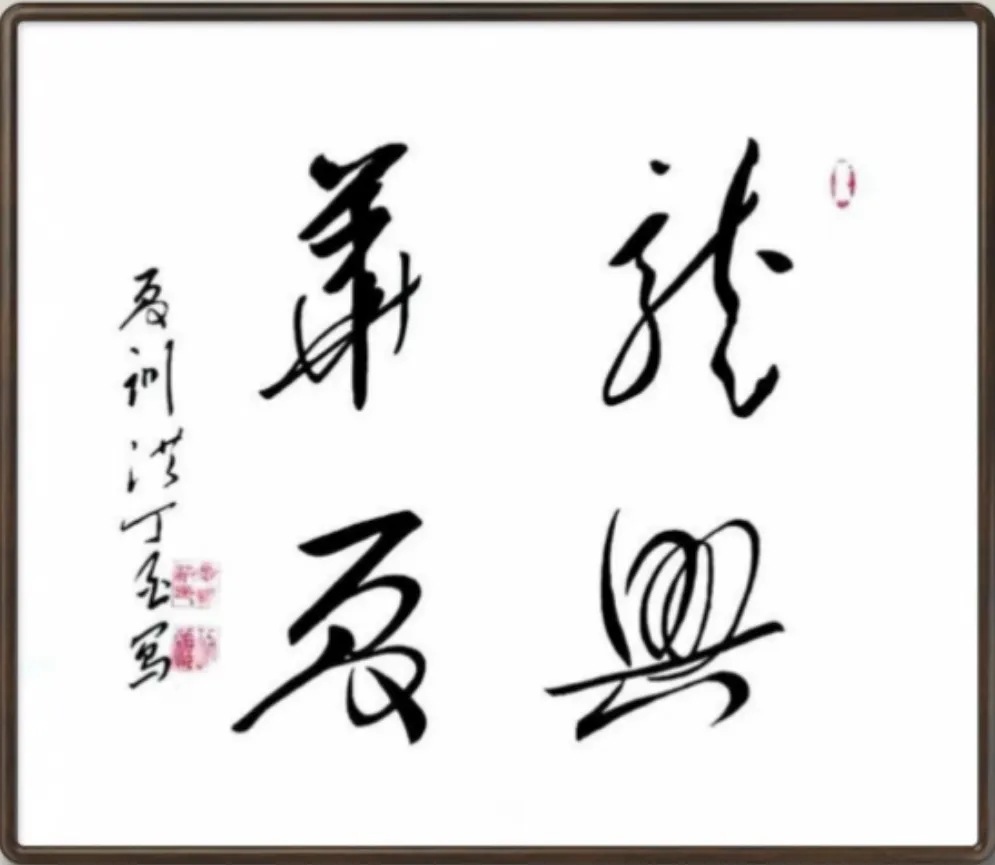 龍興
華夏
夏訓洪丁
寫